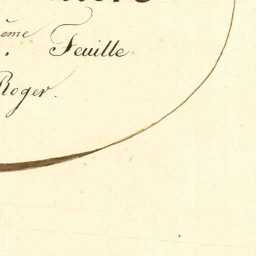 ème
Feuille.
Roger.